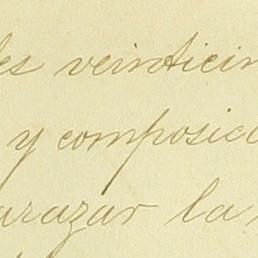 les veinticin
y composici
arazar la